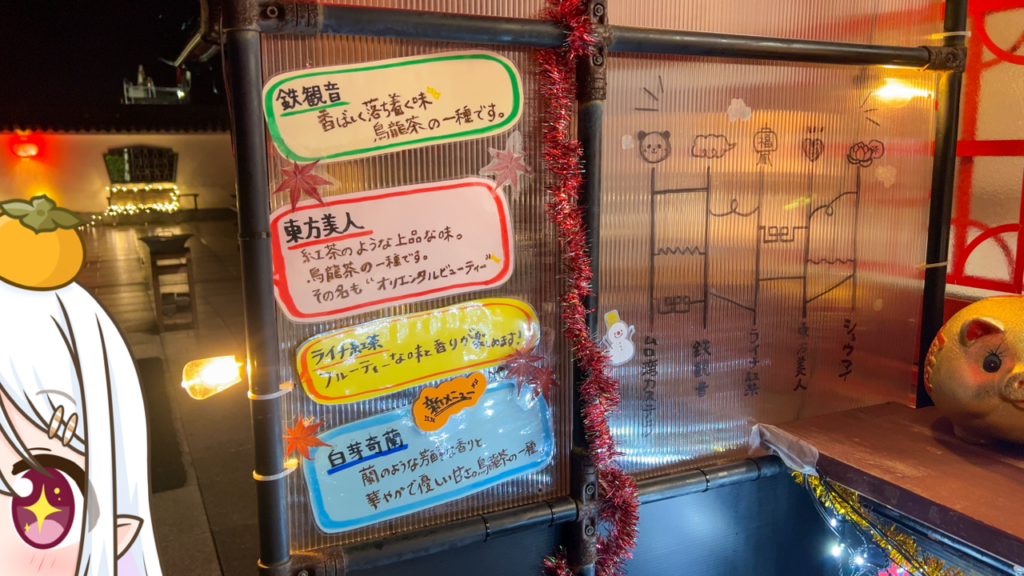 鉄観音
香ばしく落ち着く味
烏龍茶の一種です。
東方美人
紅茶のような上品な味。
烏龍茶の一種です。
その名も“オリエンタルビューティー”
ライチ紅茶
フルーティーな味と香りが楽しめます!
新メニュー
白芽奇蘭
蘭のような芳醇な香りと
華やかで優しい甘さの烏龍茶の一種
福
鉄観音
ライチ紅茶
東方美人